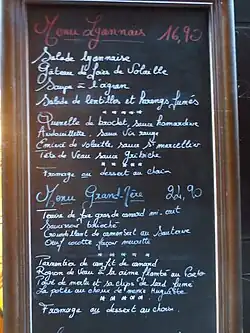 Menu Lyonnais 16,90
Salade lyonnaise
Gâteau de foies de Volaille
Soupe à l'oignon
Salade de lentilles et harengs fumés
*****
Quenelle de brochet, sauce homardine
Andouillette, sauce Vin rouge
Emincé de volaille, sauce St marcellin
Tête de Veau, sauce gribiche
*****
Fromage ou dessert au choix
Menu Grand-Mère 22,90
Terrine de foie gras de canard mi-cuit
Saucisson brioché
Croustillant de camembert au
Oeuf cocotte façon meurette
*****
Parmentier de confit de canard
Rognon de Veau à la crème flambé au
Pavé de et sa de lard fumé
*****
Fromage ou dessert au choix.